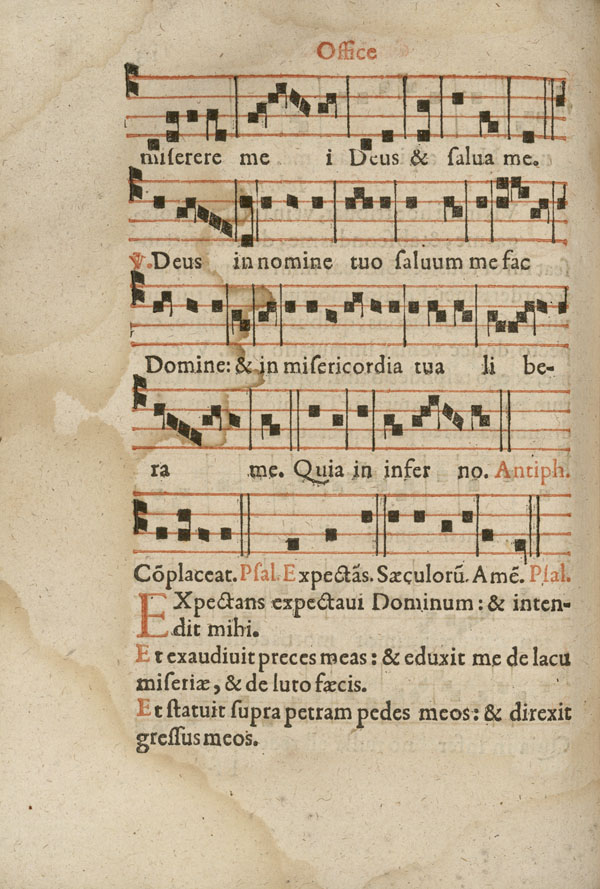 Office
miſerere me i Deus & ſalua me.
℣. Deus in nomine tuo ſaluum me fac
Domine: & in miſericordia tua li be-
ra me. Quia in infer no. Antiph.
Cõplaceat. Pſal. Expectãs. Sæculorũ. Amẽ. Pſal.
EXpectans expectaui Dominum: & inten-
dit mihi.
Et exaudiuit preces meas: & eduxit me de lacu
miſeriæ, & de luto fæcis.
Et ſtatuit ſupra petram pedes meos: & direxit
greſſus meos.